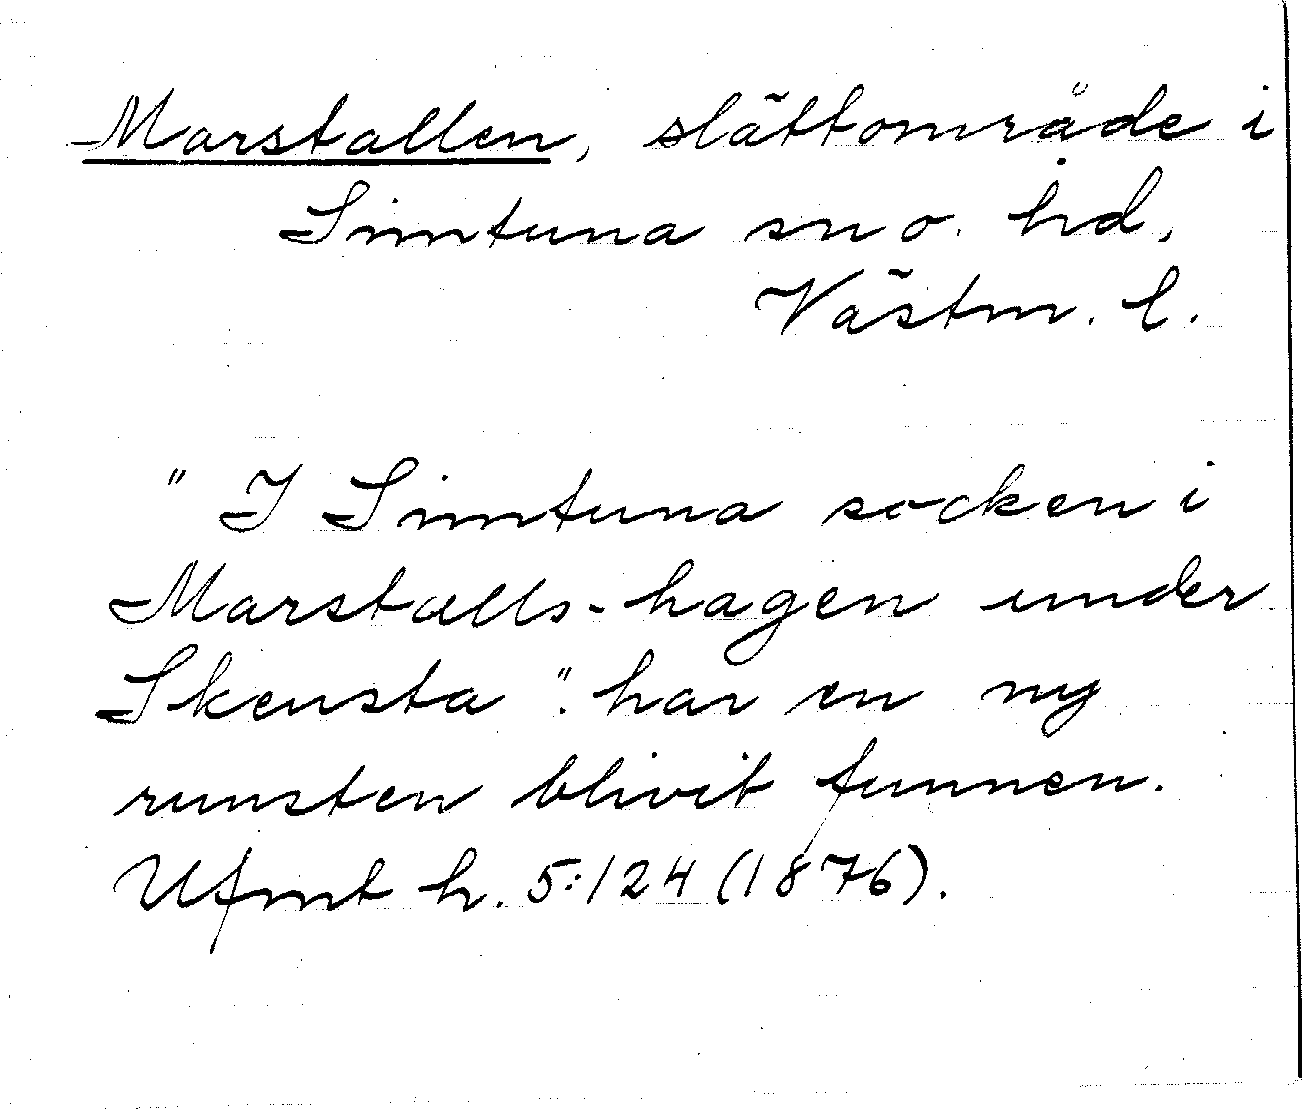 Marstallen, slättområde i
Simtuna sn o. hd,
Västm. l.
" I Simtuna socken i
Marstalls-hagen under
Skensta". har en ny
runsten blivit funnen.
Ufmt h. 5:124 (1876).